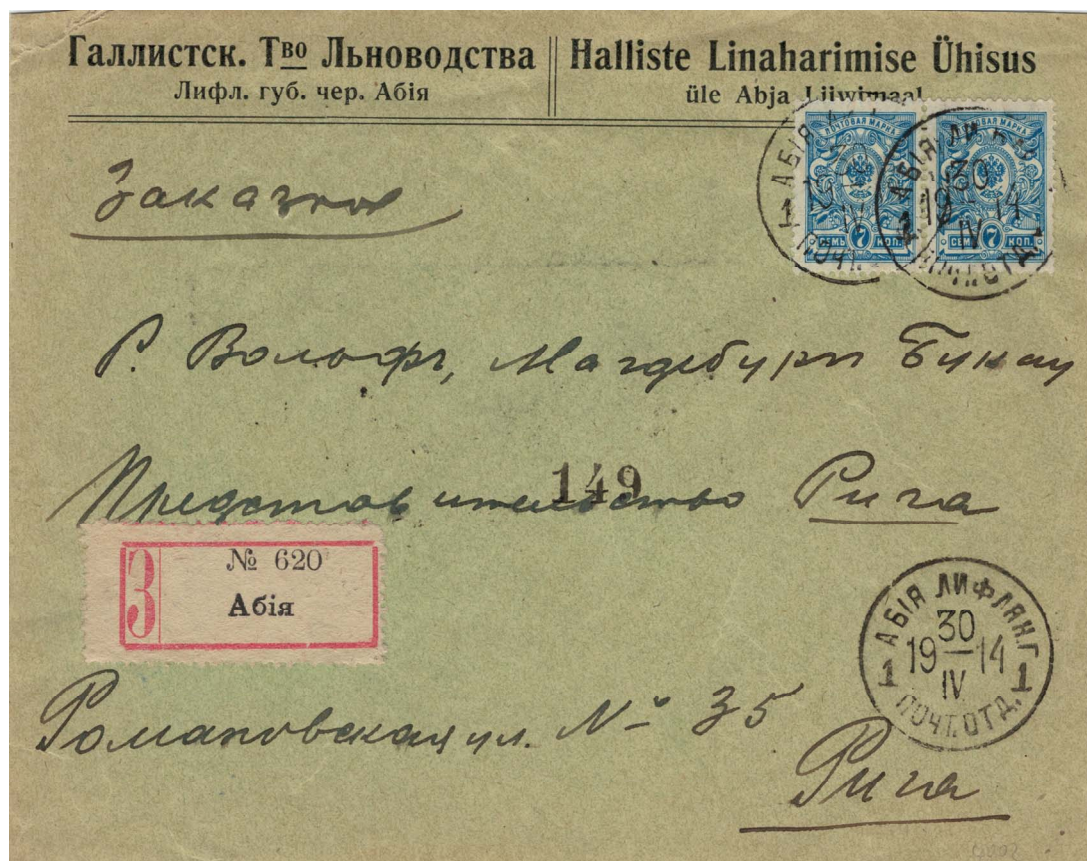 Галлистск. Тво Льноводства
Лифл. губ. чер. Абія
Halliste Linaharimise Ühisus
üle Abja Liiwimaal
ПОЧТОВАЯ МАРКА
СЕМЬ 7 КОП.
ПОЧТОВАЯ МАРКА
СЕМЬ 7 КОП.
АБІЯ
19
IV
1
АБІЯ ЛИФ
30
19 14
IV
1 ПОЧТ.ОТД. 1
Заказное
Р. Вольфъ, Магдебургъ Букау
149
Представительство Рига
З
№ 620
Абія
АБІЯ ЛИФЛЯН.Г
30
19 14
IV
1 ПОЧТ.ОТД. 1
Романовская ул. № 35
Рига